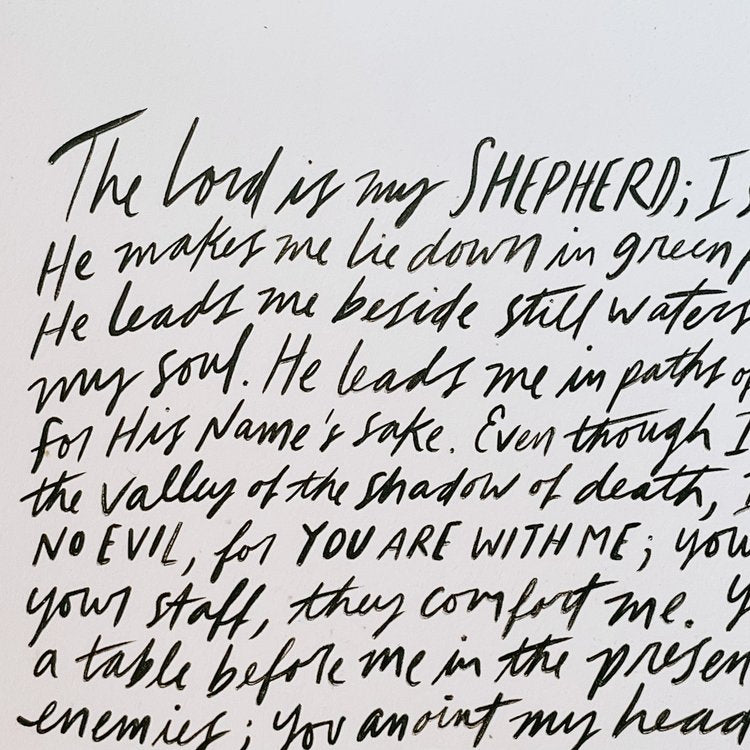 The Lord is my SHEPHERD; I s
He makes me lie down in green p
He leads me beside still waters
my soul. He leads me in paths of
for His Name's sake. Even though I
the valley of the shadow of death, I
NO EVIL, for YOU ARE WITH ME; your
your staff, they comfort me. Y
a table before me in the presen
enemies; you anoint my head